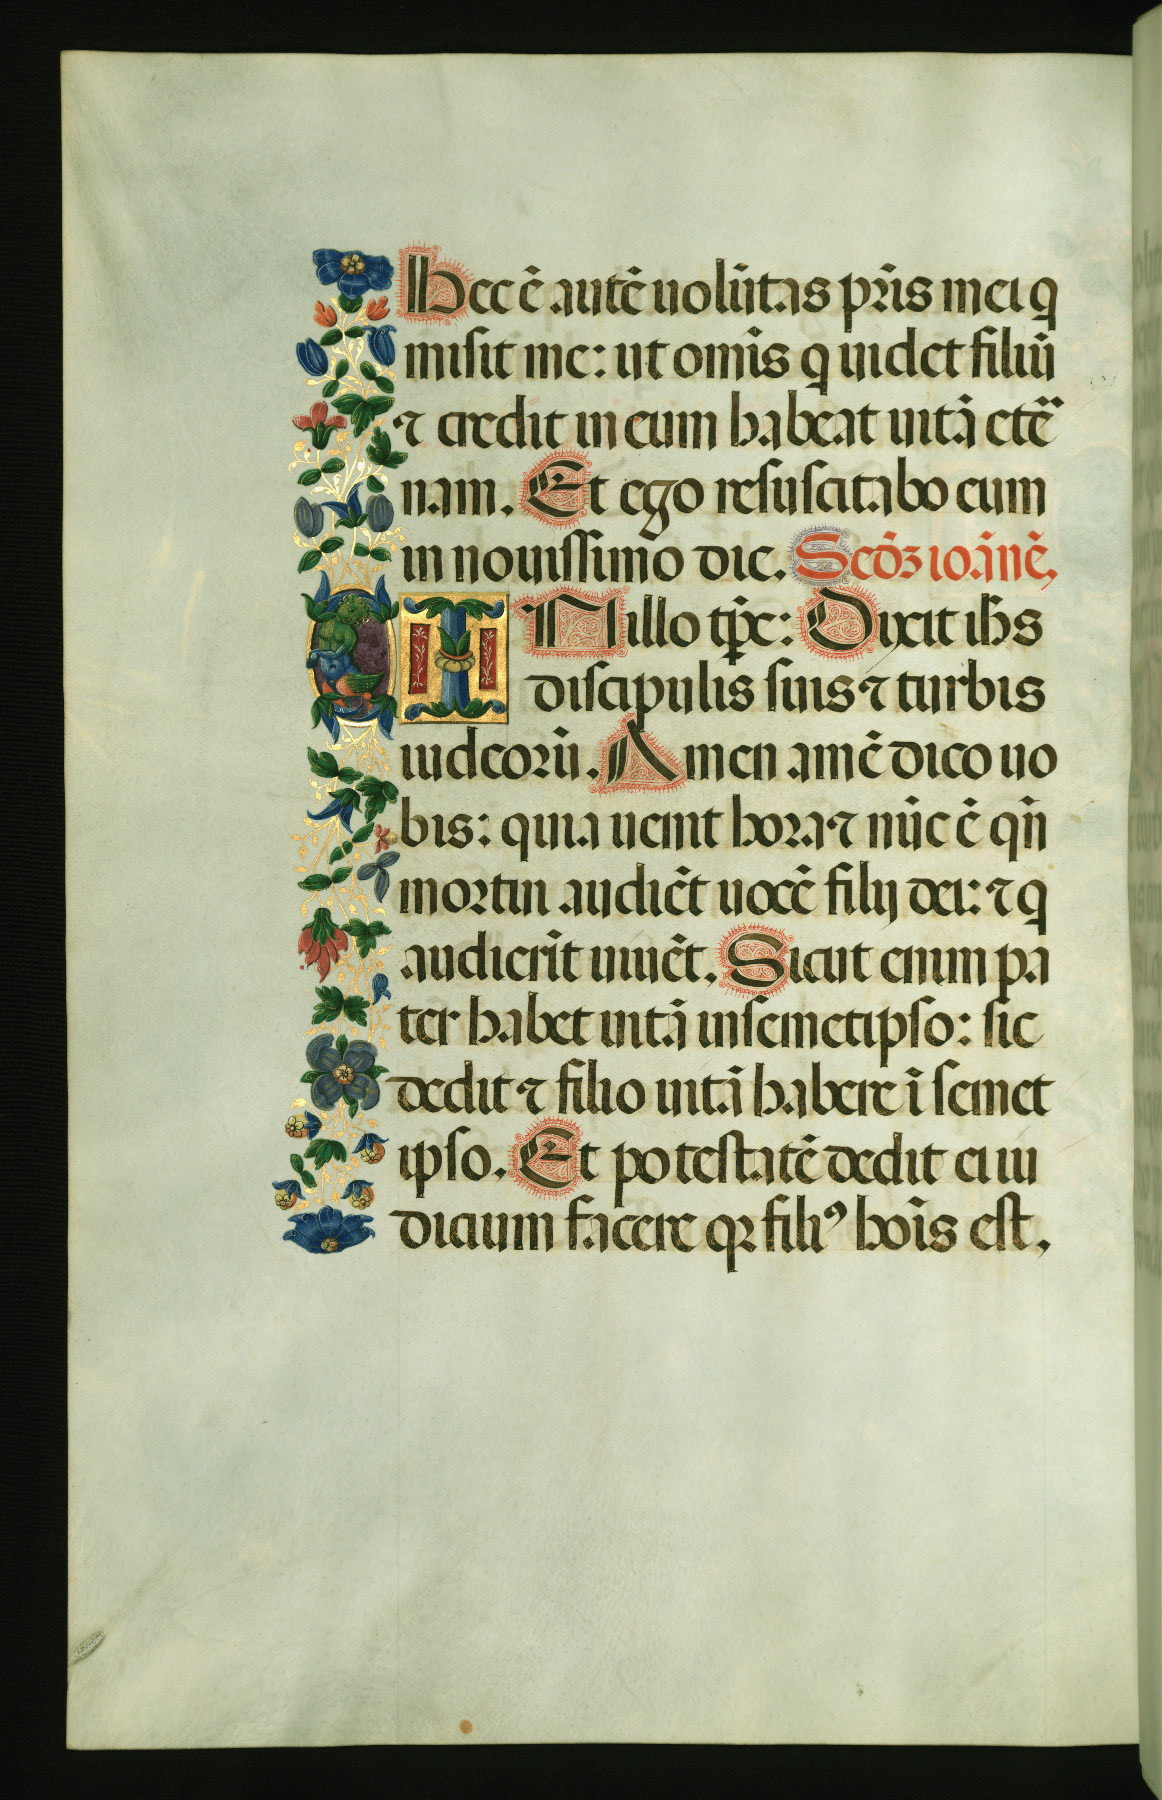 Hec ē autē uolūtas pr̄is mei q
misit me: ut omīs q uidet filiū
⁊ credit in eum habeat uitā etē
nam. Et ego resuscitabo eum
in nouissimo die. Scd̄ȝ ioānē,
IN illo tp̄e: Dixit ih̄s
discipulis suis ⁊ turbis
iudeorū. Amen amē dico uo
bis: quia uenit hora ⁊ nūc ē qn̄
mortui audiēt uocē filij dei: ⁊ q
audierīt uiuēt. Sicut enim pa
ter habet uitā insemetipso: sic
dedit ⁊ filio uitā habere ī semet
ipso. Et potestatē dedit ei iu
dicium facere qꝛ filiꝰ hoīs est.